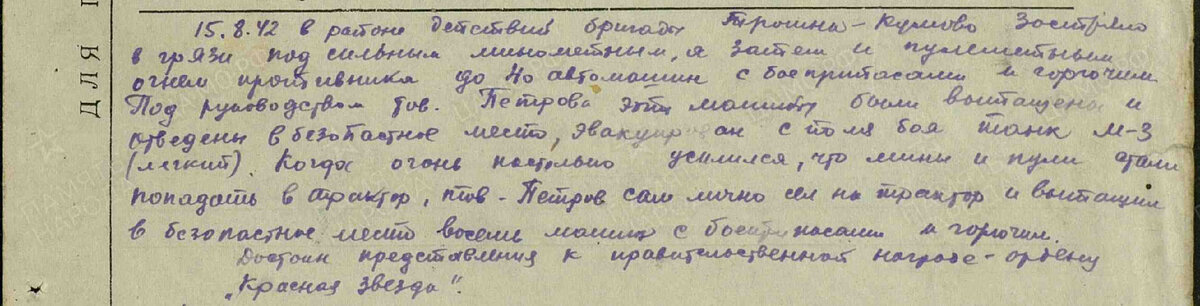 15.8.42 в районе действий бригады Трошна-Кумово застряло
в грязи под сильным минометным, а затем и пулеметным
огнем противника до 40 автомашин с боеприпасами и горючим.
Под руководством тов. Петрова эти машины были вытащены и
отведены в безопастное место, эвакуирован с поля боя танк М-3
(легкий). Когда огонь настолько усилился, что мины и пули стали
попадать в трактор, тов. Петров сам лично сел на трактор и вытащил
в безопастное место восемь машин с боеприпасами и горючим.
Достоин представления к правительственной награде - ордену
"Красная звезда".
ДЛЯ